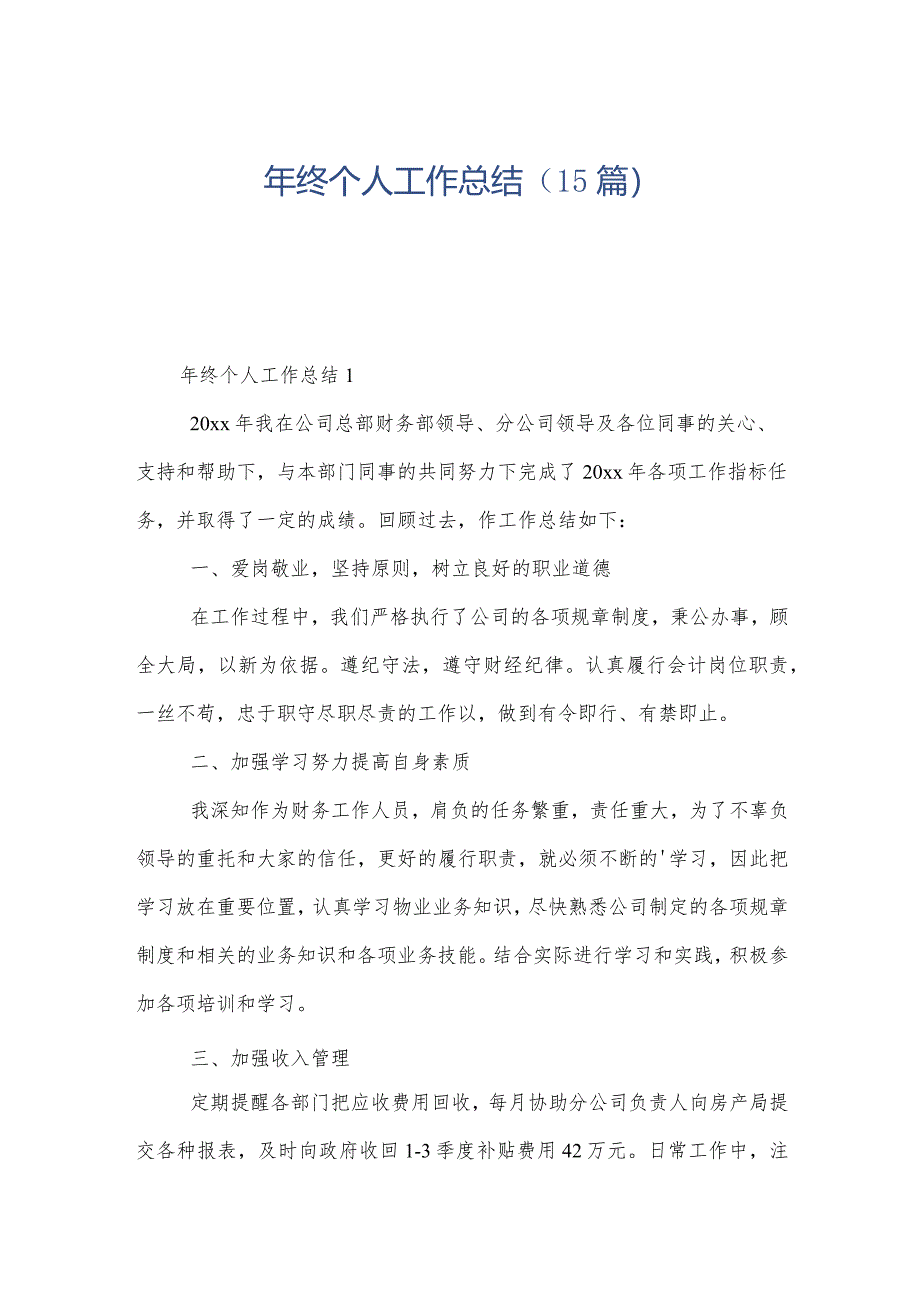 年终个人工作总结（15篇）
年终个人工作总结1
20xx年我在公司总部财务部领导、分公司领导及各位同事的关心、
支持和帮助下，与本部门同事的共同努力下完成了20xx年各项工作指标任
务，并取得了一定的成绩。回顾过去，作工作总结如下：
一、爱岗敬业，坚持原则，树立良好的职业道德
在工作过程中，我们严格执行了公司的各项规章制度，秉公办事，顾
全大局，以新为依据。遵纪守法，遵守财经纪律。认真履行会计岗位职责，
一丝不苟，忠于职守尽职尽责的工作以，做到有令即行、有禁即止。
二、加强学习努力提高自身素质
我深知作为财务工作人员，肩负的任务繁重，责任重大，为了不辜负
领导的重托和大家的信任，更好的履行职责，就必须不断的'学习，因此把
学习放在重要位置，认真学习物业业务知识，尽快熟悉公司制定的各项规章
制度和相关的业务知识和各项业务技能。结合实际进行学习和实践，积极参
加各项培训和学习。
三、加强收入管理
定期提醒各部门把应收费用回收，每月协助分公司负责人向房产局提
交各种报表，及时向政府收回1-3季度补贴费用42万元。日常工作中，注